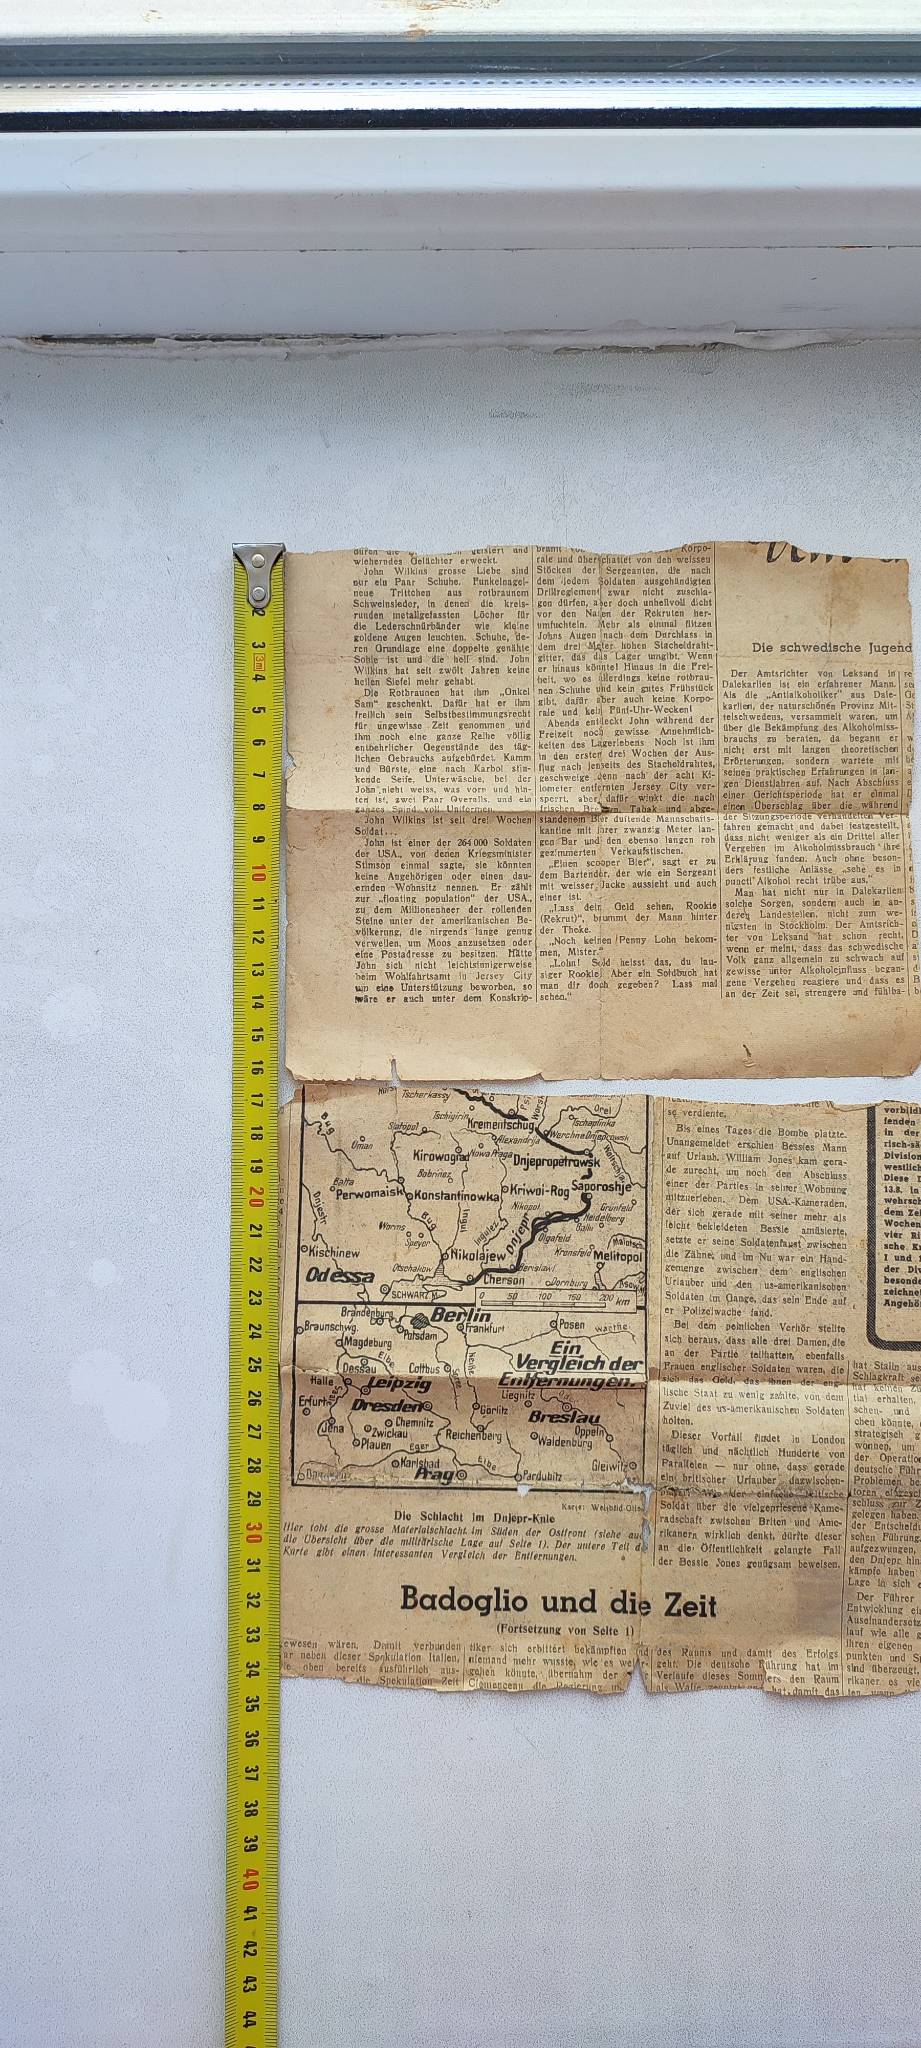 durch die geistert und
wieherndes Gelächter erweckt.
John Wilkins grosse Liebe sind
nur ein Paar Schuhe. Funkelnagel-
neue Trittchen aus rotbraunem
Schweinsleder, in denen die kreis-
runden metallgefassten Löcher für
die Lederschnürbänder wie kleine
goldene Augen leuchten. Schuhe, de-
ren Grundlage eine doppelte genähte
Sohle ist und die heil sind. John
Wilkins hat seit zwölf Jahren keine
heilen Stiefel mehr gehabt.
Die Rotbraunen hat ihm „Onkel
Sam" geschenkt. Dafür hat er ihm
freilich sein Selbstbestimmungsrecht
für ungewisse Zeit genommen und
ihm noch eine ganze Reihe völlig
entbehrlicher Gegenstände des täg-
lichen Gebrauchs aufgebürdet. Kamm
und Bürste, eine nach Karbol stin-
kende Seife, Unterwäsche, bei der
John nicht weiss, was vorn und hin-
ten ist, zwei Paar Overalls, und ein
ganzes Spind voll Uniformen.
John Wilkins ist seit drei Wochen
Soldat...
John ist einer der 264 000 Soldaten
der USA., von denen Kriegsminister
Stimson einmal sagte, sie könnten
keine Angehörigen oder einen dau-
ernden Wohnsitz nennen. Er zählt
zur „floating population" der USA.,
zu dem Millionenheer der rollenden
Steine unter der amerikanischen Be-
völkerung, die nirgends lange genug
verweilen, um Moos anzusetzen oder
eine Postadresse zu besitzen. Hätte
John sich nicht leichtsinnigerweise
beim Wohlfahrtsamt in Jersey City
um eine Unterstützung beworben, so
wäre er auch unter dem Konskrip-
brumt Korpo-
rale und überschattet von den weissen
Stöcken der Sergeanten, die nach
dem jedem Soldaten ausgehändigten
Drillreglement zwar nicht zuschla-
gen dürfen, aber doch unheilvoll dicht
vor den Nasen der Rekruten her-
umfuchteln. Mehr als einmal flitzen
Johns Augen nach dem Durchlass in
dem drei Meter hohen Stacheldraht-
gitter, das das Lager umgibt. Wenn
er hinaus könnte! Hinaus in die Frei-
heit, wo es allerdings keine rotbrau-
nen Schuhe und kein gutes Frühstück
gibt, dafür aber auch keine Korpo-
rale und kein Fünf-Uhr-Wecken!
Abends entdeckt John während der
Freizeit noch gewisse Annehmlich-
keiten des Lagerlebens. Noch ist ihm
in den ersten drei Wochen der Aus-
flug nach jenseits des Stacheldrahtes,
geschweige denn nach der acht Ki-
lometer entfernten Jersey City ver-
sperrt, aber dafür winkt die nach
frischem Bier, Tabak und abge-
standenem Bier duftende Mannschafts-
kantine mit ihrer zwanzig Meter lan-
gen Bar und den ebenso langen roh
gezimmerten Verkaufstischen.
„Einen scooper Bier", sagt er zu
dem Bartender, der wie ein Sergeant
mit weisser Jacke aussieht und auch
einer ist.
„Lass dein Geld sehen, Rookie
(Rekrut)", brummt der Mann hinter
der Theke.
„Noch keinen Penny Lohn bekom-
men, Mister."
„Lohn! Sold heisst das, du lau-
siger Rookie. Aber ein Soldbuch hat
man dir doch gegeben? Lass mal
sehen."
Die schwedische Jugend
Der Amtsrichter von Leksand in
Dalekarlien ist ein erfahrener Mann.
Als die „Antialkoholiker" aus Dale-
karlien, der naturschönen Provinz Mit-
telschwedens, versammelt waren, um
über die Bekämpfung des Alkoholmiss-
brauchs zu beraten, da begann er
nicht erst mit langen theoretischen
Erörterungen, sondern wartete mit
seinen praktischen Erfahrungen in lan-
gen Dienstjahren auf. Nach Abschluss
einer Gerichtsperiode hat er einmal
einen Überschlag über die während
der Sitzungsperiode verhandelten Ver-
fahren gemacht und dabei festgestellt,
dass nicht weniger als ein Drittel aller
Vergehen im Alkoholmissbrauch ihre
Erklärung fanden. Auch ohne beson-
ders festliche Anlässe „sehe es in
puncti Alkohol recht trübe aus."
Man hat nicht nur in Dalekarlien
solche Sorgen, sondern auch in an-
deren Landesteilen, nicht zum we-
nigsten in Stockholm. Der Amtsrich-
ter von Leksand hat schon recht,
wenn er meint, dass das schwedische
Volk ganz allgemein zu schwach auf
gewisse unter Alkoholeinfluss began-
gene Vergehen reagiere und dass es
an der Zeit sei, strengere und fühlba-
Tscherkassy
Tschigirin
Krementschug
Orel
Tschaplinka
Werchne Dnjeprowsk
Uman
Bug
Alexandrija
Kirowograd
Nowo Praga
Dnjepropetrowsk
Bobrinez
Balta
Perwomaisk
Konstantinowka
Kriwoi-Rog
Saporoshje
Dnjestr
Nikopol
Grünfeld
Heidelberg
Worms
Bug
Ingul
Ingulez
Dnjepr
Speyer
Olgafeld
Kischinew
Nikolajew
Kronsfeld
Melitopol
Odessa
Otschakow
Cherson
Berislawl
Dornburg
SCHWARZ. M.
0 50 100 150 200 km
Brandenburg
Berlin
Braunschwg.
Potsdam
Frankfurt
Posen
Warthe
Magdeburg
Elbe
Ein
Vergleich der
Entfernungen.
Dessau
Cottbus
Neiße
Halle
Leipzig
Liegnitz
Erfurt
Dresden
Görlitz
Breslau
Chemnitz
Jena
Zwickau
Reichenberg
Oppeln
Plauen
Waldenburg
Eger
Karlsbad
Elbe
Gleiwitz
Prag
Pardubitz
Die Schlacht im Dnjepr-Knie
Hier tobt die grosse Materialschlacht im Süden der Ostfront (siehe auch
die Übersicht über die militärische Lage auf Seite 1). Der untere Teil der
Karte gibt einen interessanten Vergleich der Entfernungen.
so verdiente.
Bis eines Tages die Bombe platzte.
Unangemeldet erschien Bessies Mann
auf Urlaub. William Jones kam gera-
de zurecht, um noch den Abschluss
einer der Parties in seiner Wohnung
mitzuerleben. Dem USA-Kameraden,
der sich gerade mit seiner mehr als
leicht bekleideten Bessie amüsierte,
setzte er seine Soldatenfaust zwischen
die Zähne, und im Nu war ein Hand-
gemenge zwischen dem englischen
Urlauber und den us-amerikanischen
Soldaten im Gange, das sein Ende auf
er Polizeiwache fand.
Bei dem peinlichen Verhör stellte
sich heraus, dass alle drei Damen, die
an der Partie teilhatten, ebenfalls
Frauen englischer Soldaten waren, die
sich das Geld, das ihnen der eng-
lische Staat zu wenig zahlte, von dem
Zuviel des us-amerikanischen Soldaten
holten.
Dieser Vorfall findet in London
täglich und nächtlich Hunderte von
Parallelen — nur ohne, dass gerade
ein britischer Urlauber dazwischen-
platzt. Wie der einfache britische
Soldat über die vielgepriesene Kame-
radschaft zwischen Briten und Ame-
rikanern wirklich denkt, dürfte dieser
an die Öffentlichkeit gelangte Fall
der Bessie Jones genügsam beweisen.
vorbildl
fenden
in der
risch-sä
Division
westlich
Diese D
13.8. in
wehrsch
dem Zei
Wochen
vier Ri
sche K
I und
der Div
besond
zeichnet
Angehö
hat Stalin aus
Schlagkraft se
hat keinen Zu
tial erhalten,
schen- und
chen könnte,
strategisch g
wonnen, um
der Operation
deutsche Führ
Problemen be
toren eingesch
schluss zur
gelegen haben.
der Entscheidu
schen Führung.
aufgezwungen,
den Dnjepr hin
kämpfe haben
Lage in sich
Der Führer
Entwicklung ei
Auseinandersetz
lauf wie alle g
ihren eigenen
punkten und S
sind überzeugt,
rikaner es vie
Badoglio und die Zeit
(Fortsetzung von Seite 1)
ewesen wären. Damit verbunden
ar neben dieser Spekulation Italien,
ie oben bereits ausführlich aus-
die Spekulation Zeit
tiker sich erbittert bekämpften und
niemand mehr wusste, wie es weiter
gehen könnte, übernahm der
Clemenceau die Regierung
des Raums und damit des Erfolgs
geht: Die deutsche Führung hat im
Verlaufe dieses Sommers den Raum
hat damit das